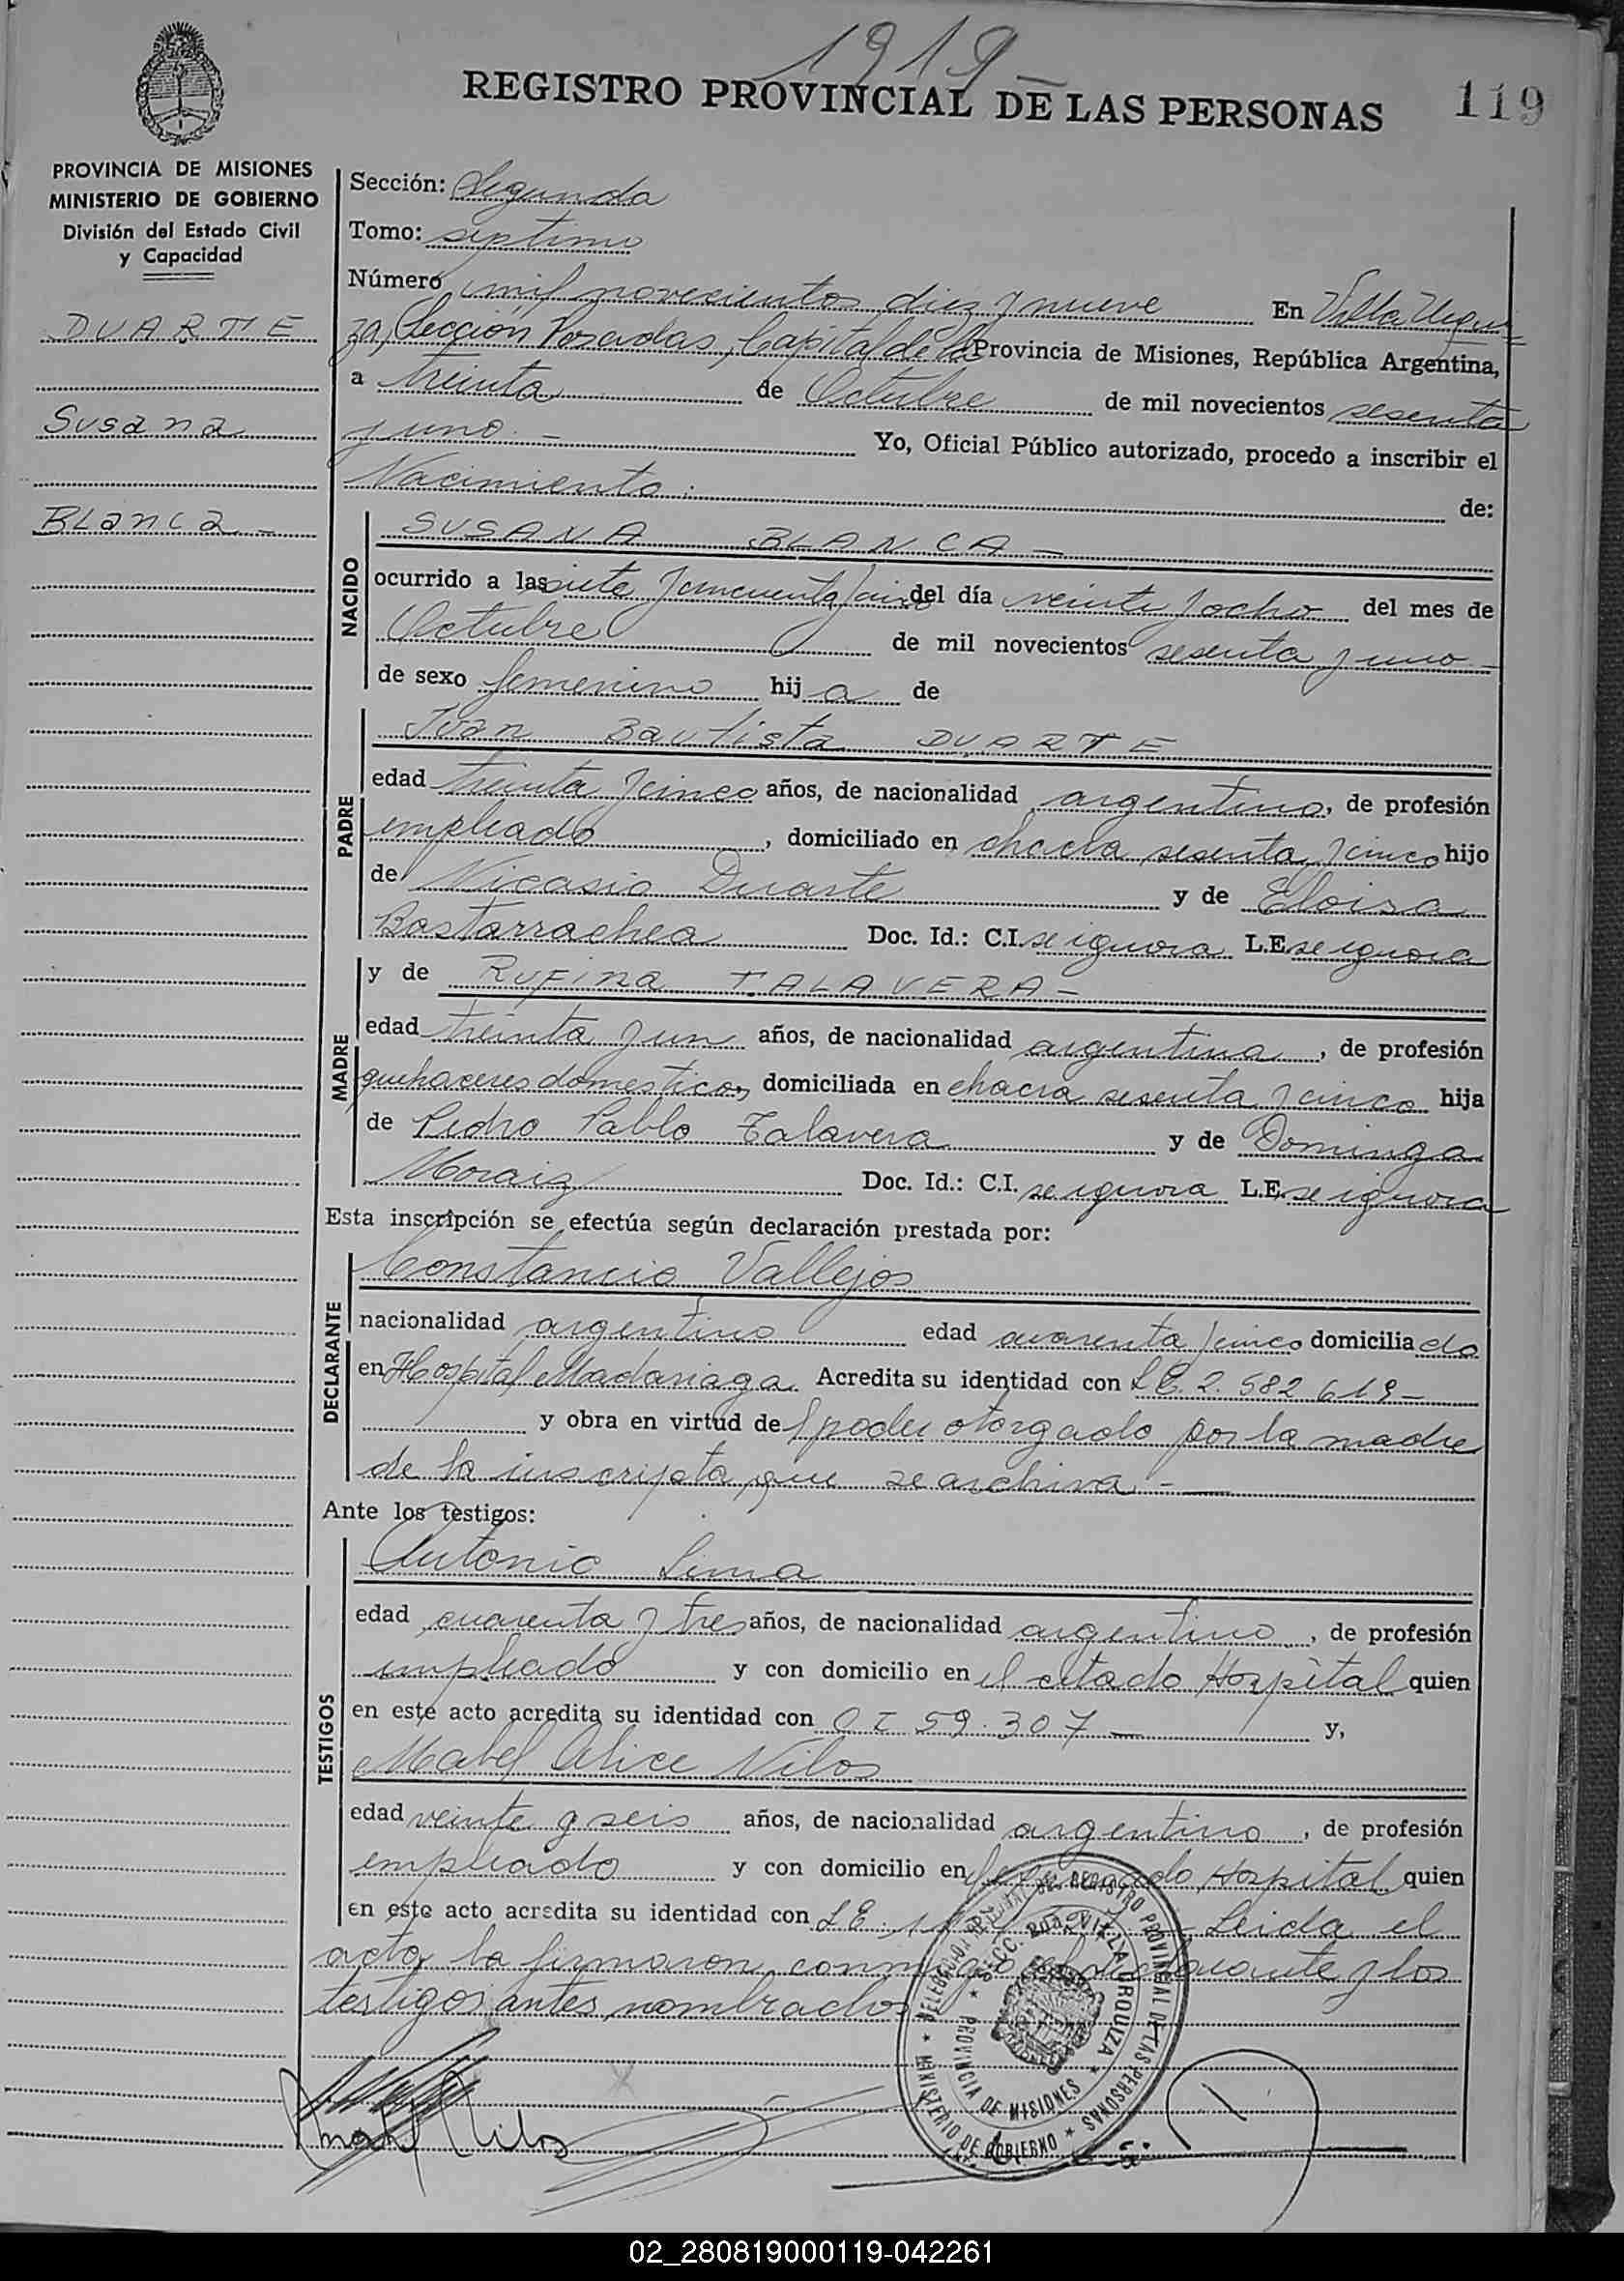 1919
REGISTRO PROVINCIAL DE LAS PERSONAS
119
PROVINCIA DE MISIONES
MINISTERIO DE GOBIERNO
División del Estado Civil
y Capacidad
DUARTE
Susana
BLanca -
Sección: Segunda
Tomo: septimo
Número mil novecientos diez y nueve En Villa Urqui
za, Sección Posadas, Capital de la Provincia de Misiones, República Argentina,
a treinta de Octubre de mil novecientos sesenta
y uno - Yo, Oficial Público autorizado, procedo a inscribir el
Nacimiento: de:
NACIDO
SUSANA BLANCA -
ocurrido a las siete y cincuenta y cinco del día veinte y ocho del mes de
Octubre de mil novecientos sesenta y uno -
de sexo femenino hija de
PADRE
Juan Bautista DUARTE
edad treinta y cinco años, de nacionalidad argentino, de profesión
empleado, domiciliado en chacra sesenta y cinco hijo
de Nicasio Duarte y de Eloisa
Bastarrachea Doc. Id.: C.I. se ignora L.E. se ignora
MADRE
y de RUFINA TALAVERA -
edad treinta y un años, de nacionalidad argentina, de profesión
quehaceres domesticos, domiciliada en chacra sesenta y cinco hija
de Pedro Pablo Talavera y de Dominga
Moraiz Doc. Id.: C.I. se ignora L.E. se ignora
Esta inscripción se efectúa según declaración prestada por:
DECLARANTE
Constancio Vallejos
nacionalidad argentino edad cuarenta y cinco domiciliado
en Hospital Madariaga. Acredita su identidad con L E. 2.582 619 -
y obra en virtud del poder otorgado por la madre
de la inscripta, que se archiva. -
Ante los testigos:
TESTIGOS
Antonio Lima
edad cuarenta y tres años, de nacionalidad argentino, de profesión
empleado y con domicilio en el citado Hospital quien
en este acto acredita su identidad con C I 59.307 - y,
Mabel Alice Vilos
edad veinte y seis años, de nacionalidad argentino, de profesión
empleado y con domicilio en Hospital quien
en este acto acredita su identidad con L E. Leida el
acta, la firmaron conmigo el declarante y los
testigos antes nombrados
DELEGACION DEL REGISTRO PROVINCIAL DE LAS PERSONAS
MINISTERIO DE GOBIERNO
VILLA URQUIZA
PROVINCIA DE MISIONES
Mabel Vilos
02_280819000119-042261